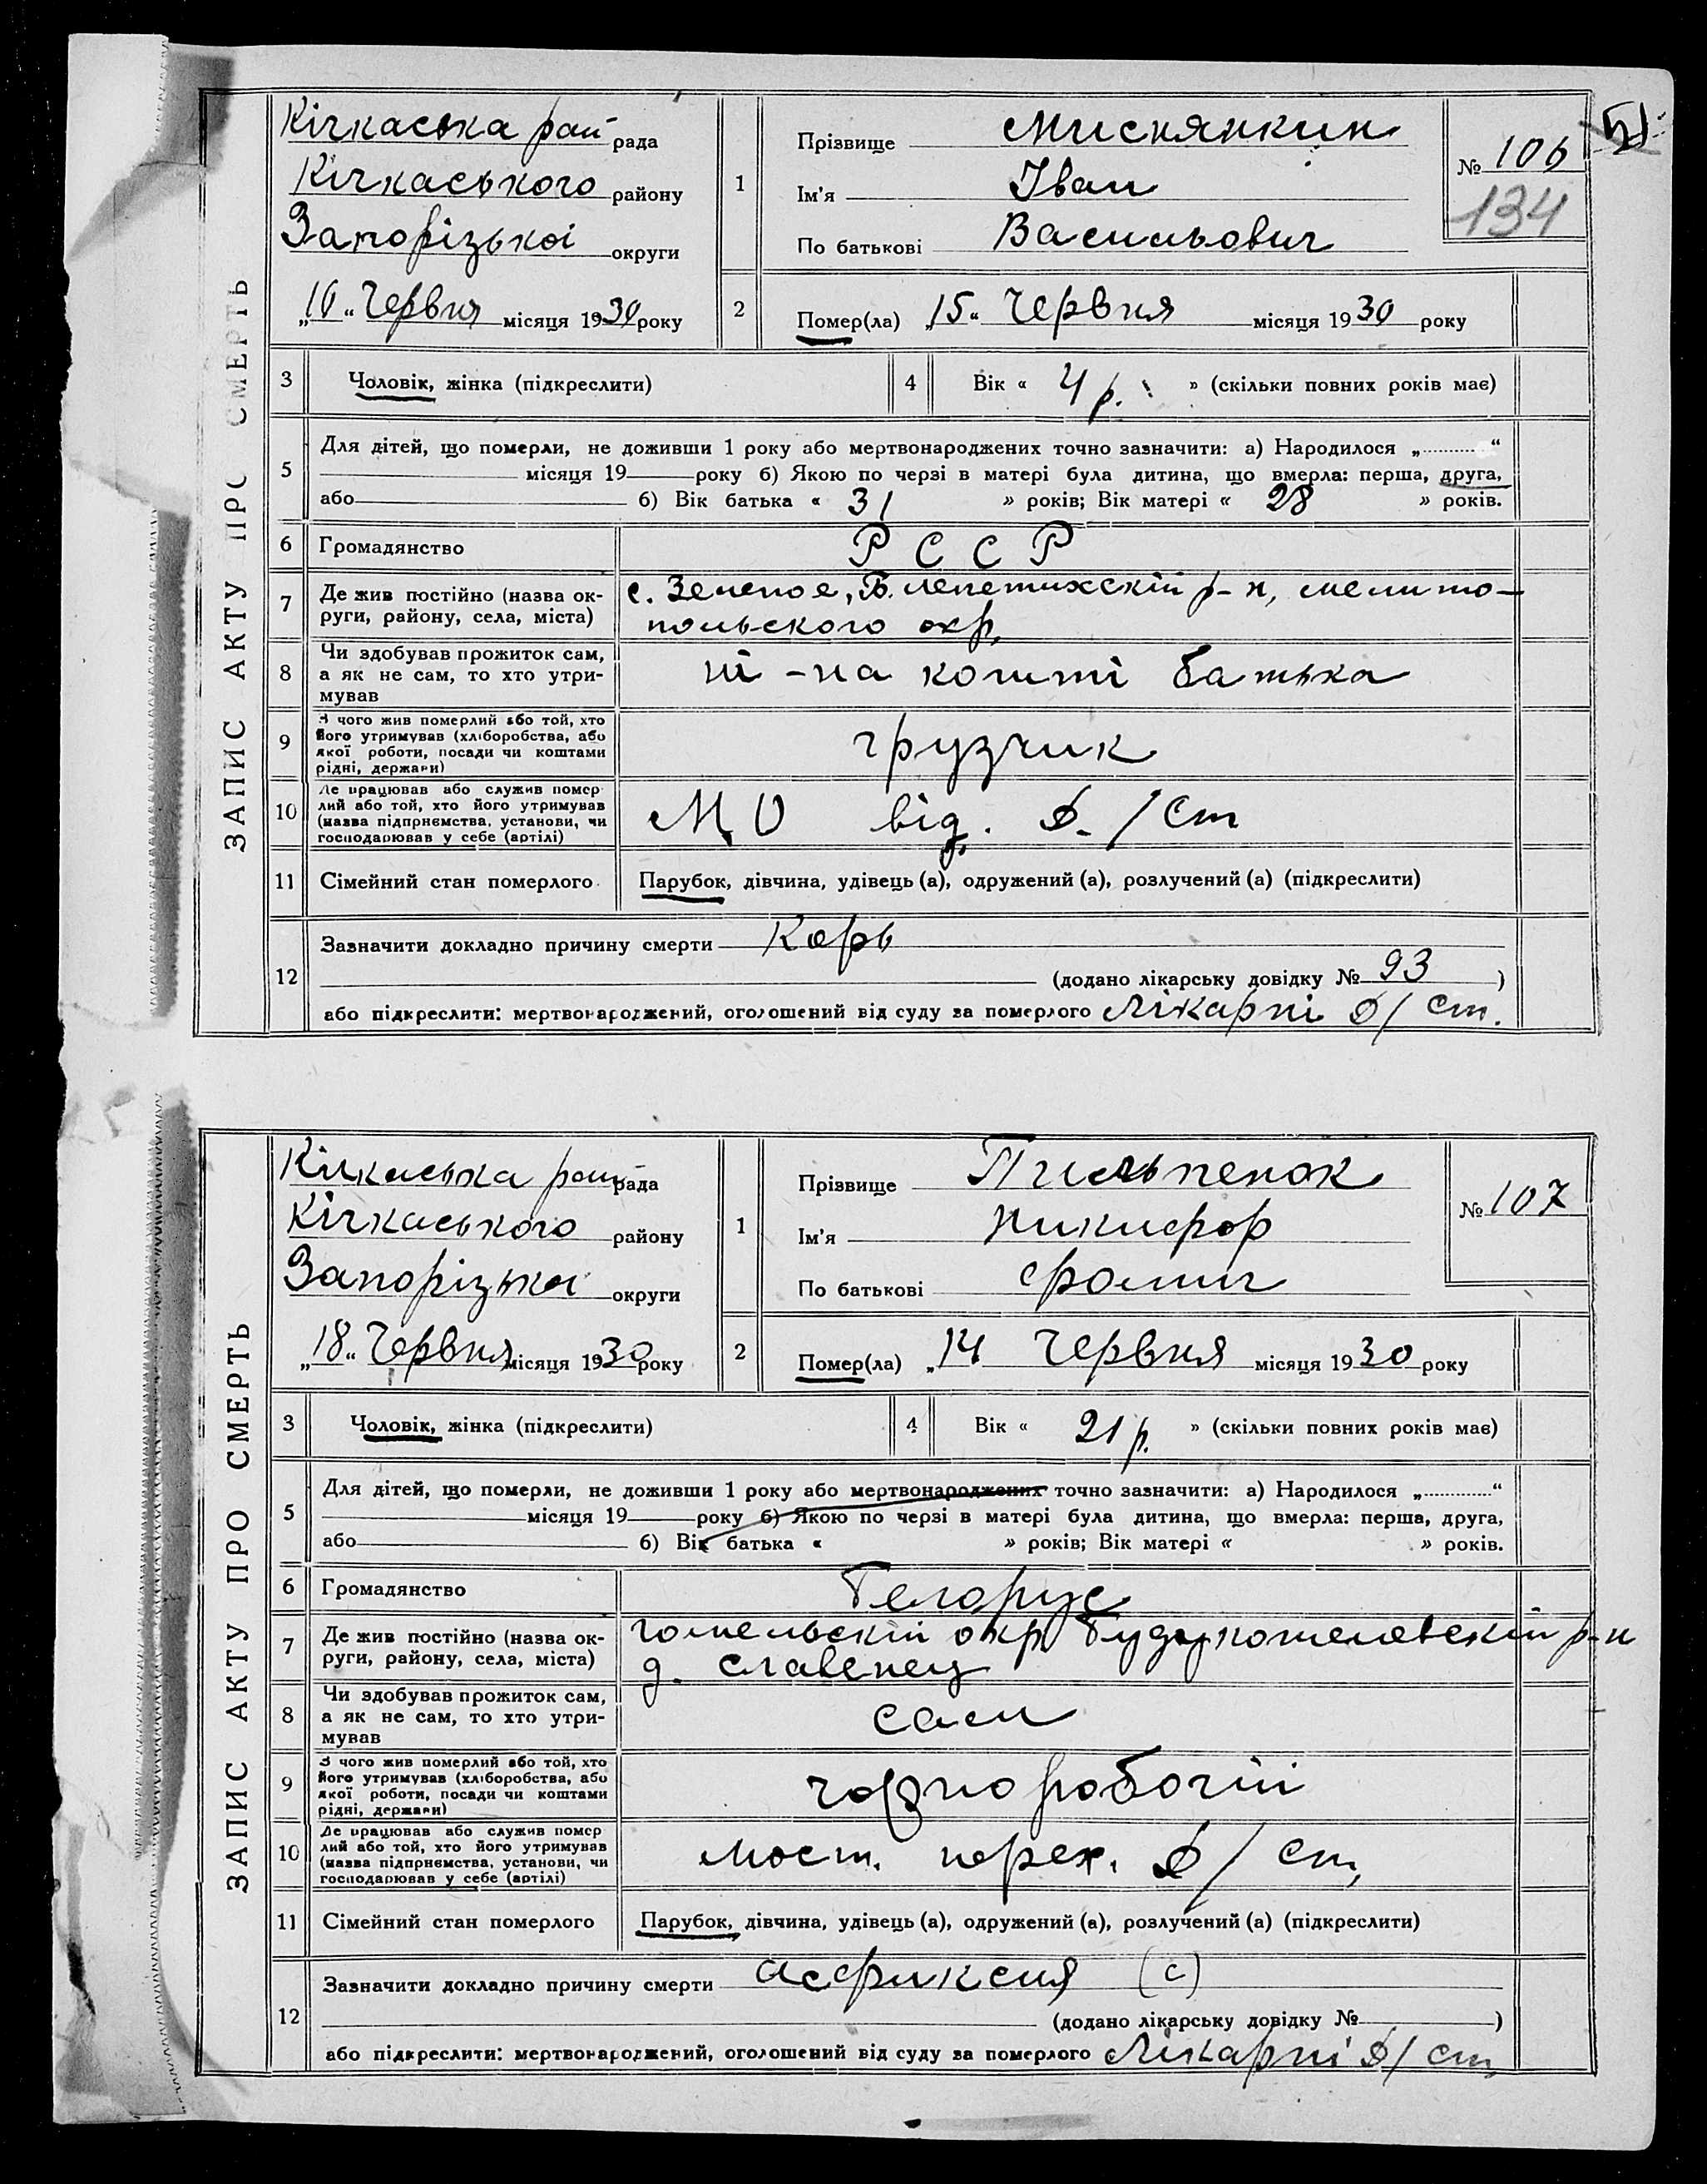 51
ЗАПИС АКТУ ПРО СМЕРТЬ
Кічкаська рай рада
Кічкаського району
Запорізької округи
„16“ Червня місяця 1930 року
1
Прізвище
Ім'я Іван
По батькові Васильович
№ 106
134
2
Помер(ла) „15“ Червня місяця 1930 року
3 Чоловік, жінка (підкреслити)
4 Вік « 4 р. » (скільки повних років має)
5 Для дітей, що померли, не доживши 1 року або мертвонароджених точно зазначити: а) Народилося „ “
місяця 19 року б) Якою по черзі в матері була дитина, що вмерла: перша, друга,
або б) Вік батька « 31 » років; Вік матері « 28 » років.
6 Громадянство Р С С Р
7 Де жив постійно (назва ок- с. Зеленое, Б. Лепетихскій р-н, мелито-
руги, району, села, міста) польского окр.
8 Чи здобував прожиток сам,
а як не сам, то хто утри- ні - на кошті батька
мував
9 З чого жив померлий або той, хто
його утримував (хліборобства, або
якої роботи, посади чи коштами грузчик
рідні, держави)
10 Де працював або служив помер
лий або той, хто його утримував
(назва підприємства, установи, чи від. Д/ст
господарював у себе (артілі)
11 Сімейний стан померлого Парубок, дівчина, удівець (а), одружений (а), розлучений (а) (підкреслити)
12 Зазначити докладно причину смерти Корь
(додано лікарську довідку № 93 )
або підкреслити: мертвонароджений, оголошений від суду за померлого Лікарні Д/ст.
ЗАПИС АКТУ ПРО СМЕРТЬ
Кічкаська рай рада
Кічкаського району
Запорізької округи
„18“ Червня місяця 1930 року
1
Прізвище
Ім'я Никифор
По батькові Фомич
№ 107
2
Помер(ла) „14 Червня місяця 1930 року
3 Чоловік, жінка (підкреслити)
4 Вік « 21 р. » (скільки повних років має)
5 Для дітей, що померли, не доживши 1 року або мертвонароджених точно зазначити: а) Народилося „ “
місяця 19 року б) Якою по черзі в матері була дитина, що вмерла: перша, друга,
або б) Вік батька « » років; Вік матері « » років.
6 Громадянство Белорус
7 Де жив постійно (назва ок- гомельскій окр. р-н
руги, району, села, міста) д. славенец
8 Чи здобував прожиток сам,
а як не сам, то хто утри- сам
мував
9 З чого жив померлий або той, хто
його утримував (хліборобства, або
якої роботи, посади чи коштами чорноробочій
рідні, держави)
10 Де працював або служив помер
лий або той, хто його утримував
(назва підприємства, установи, чи мост. перех. Д/ст,
господарював у себе (артілі)
11 Сімейний стан померлого Парубок, дівчина, удівець (а), одружений (а), розлучений (а) (підкреслити)
12 Зазначити докладно причину смерти асфиксия (с)
(додано лікарську довідку № )
або підкреслити: мертвонароджений, оголошений від суду за померлого Лікарні Д/ст,